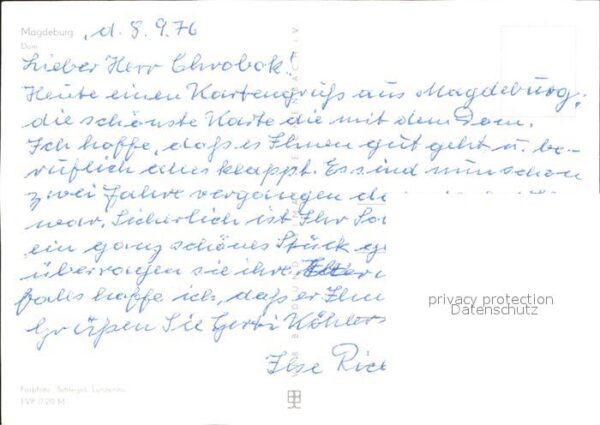 Magdeburg , d. 8.9.76
Dom
Lieber Herr Chrobok!
Heute einen Kartengruß aus Magdeburg,
die schönste Karte die mit dem Dom.
Ich hoffe, daß es Ihnen gut geht u. be-
ruflich alles klappt. Es sind nun schon
zwei Jahre vergangen da
war. Sicherlich ist Ihr So
ein ganz schönes Stück ge
überragen sie ihre Eltern
falls hoffe ich, daß er Ihn
Grüßen Sie Köhlers
Ilse Rich
privacy protection
Datenschutz
EVP 0.20 M